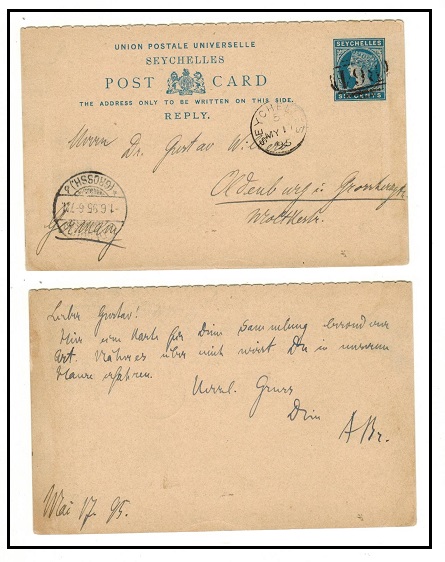 UNION POSTALE UNIVERSELLE
SEYCHELLES
POST CARD
THE ADDRESS ONLY TO BE WRITTEN ON THIS SIDE.
REPLY.
SEYCHELLES
SIX CENTS
SEYCHELLES
MY 17
95
Herrn Dr. Gustav
Oldenburg i. Grossherzgt.
Moltkestr.
Germany
(GROSSH.)
1.6.95.6-7
Lieber Gustav!
Hier eine Karte für Deine Sammlung besonderer
Art. Näheres über mich wirst Du in unserem
Hause erfahren.
Herzl. Gruss
Dein
A Br.
Mai 17. 95.